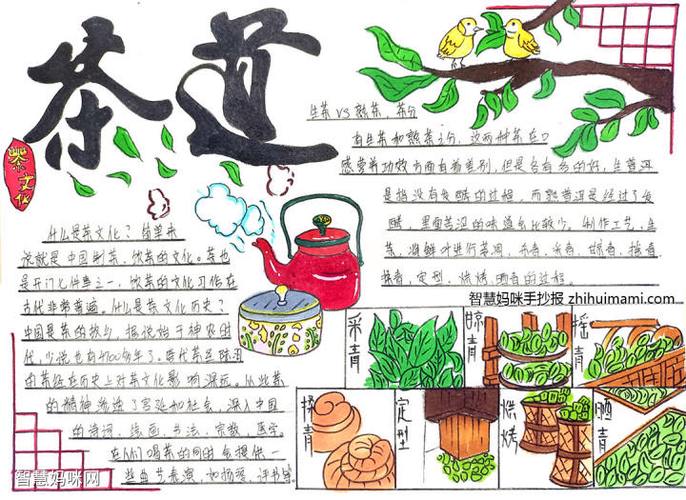 茶道
茶文化
什么是茶文化？简单来
说就是中国制茶、饮茶的文化。茶也
是开门七件事之一，饮茶的文化习俗在
古代非常普遍。什么是茶文化历史？
中国是茶的故乡，据说始于神农时
代，少说也有4700多年了。唐代茶圣陆羽
的茶经在历史上对茶文化影响深远。从此茶
的精神渗透了宫廷和社会，深入中国
的诗词、绘画、书法、宗教、医学。
在人们喝茶的同时会提供一
些曲艺表演，如扬琴、评书等
生茶VS熟茶，茶分
有生茶和熟茶之分，这两种茶在口
感营养功效方面有着差别，但是各有各的好，生普洱
是指没有发酵的过程，而熟普洱是经过了发
酵，里面苦涩的味道会比较少。制作工艺，生
茶，海鲜叶进行蒸凋，杀青，采青，晾青，摇青
揉青，定型，烘烤，晒青的过程。
智慧妈咪手抄报 zhihuimami.com
采青
晾青
摇青
揉青
定型
烘烤
晒青
智慧妈咪网